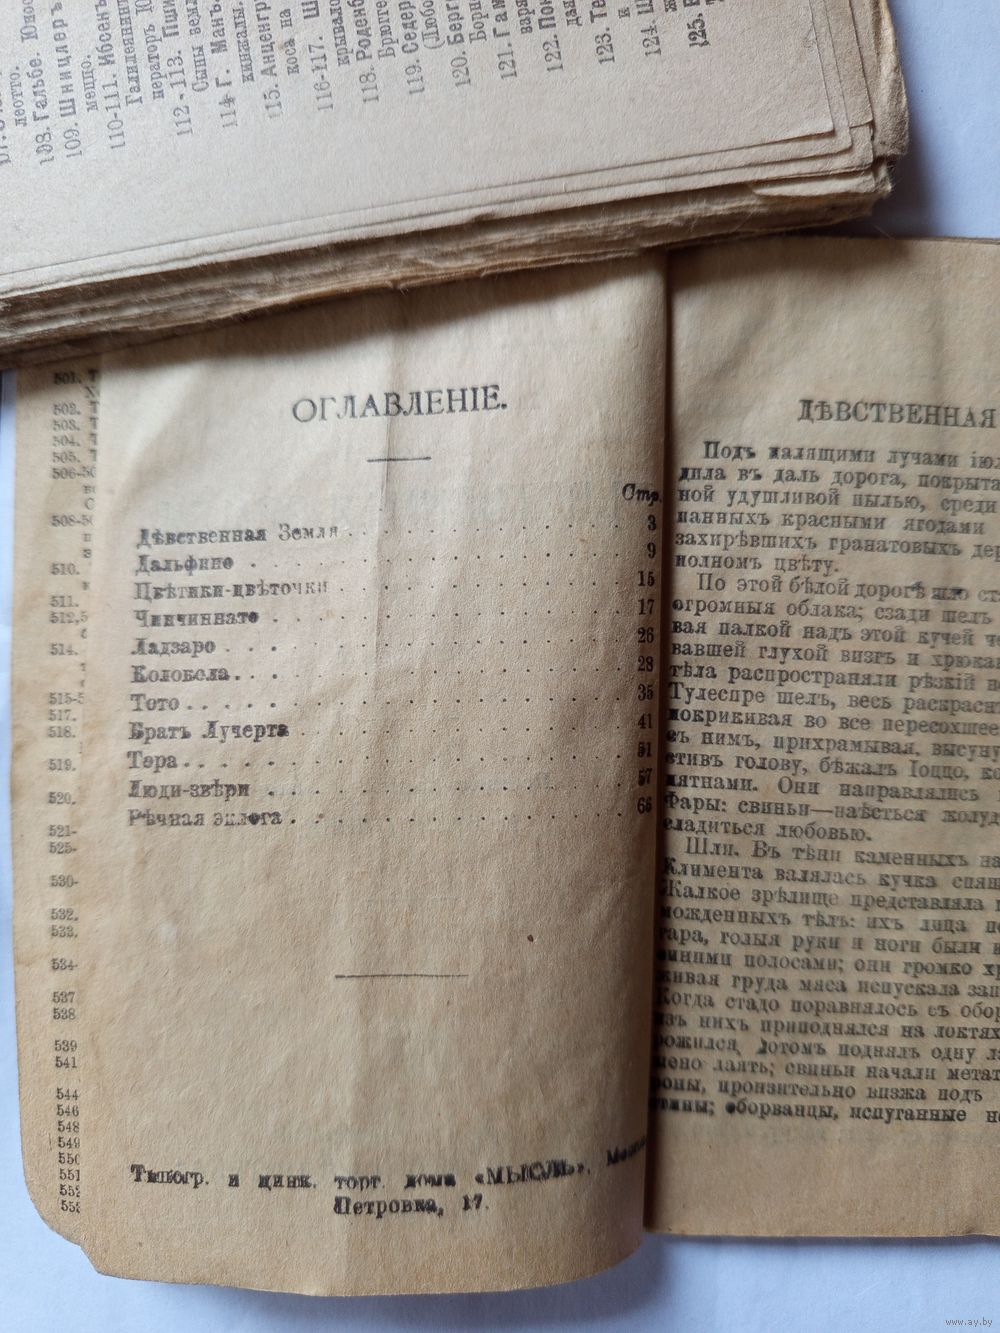 леотто.
108. Гальбе. Юнос
109. Шницлеръ
меццо.
110-111. Ибсенъ
Галилеянин
ператоръ Ю
112-113. Пши
Сыны земл
114 Г. Манъ.
кинжалы.
115. Анценгр
коса на
116-117. Ш
крывало
118. Роденб
Брюгге
119. Седер
(Любо
120. Берг
Борн
121. Гам
варя
122. Пон
дая
123. Те
и
124. Ш
125. 
ОГЛАВЛЕНІЕ.
Стр.
Дѣвственная Земля 3
Дальфино 9
Цвѣтики-цвѣточки 15
Чинчиннато 17
Ладзаро 26
Колобела 28
Тото 35
Братъ Лучерта 41
Тора 51
Люди-звѣри 57
Рѣчная эклога 66
Типогр. и цинк. торг. дома «МЫСЛЬ».
Петровка, 17.
501. Т
502. Т
503. Т
504. Т
505. Т
506-50
508-5
510.
511.
512,5
514.
515-5
517.
518.
519.
520.
521-
525-
530-
532.
533.
534-
537
538
539
541
544
546
548
549
550
551
552
ДѢВСТВЕННАЯ
Подъ палящими лучами іюл
дила въ даль дорога, покрыта
ной удушливой пылью, среди
панныхъ красными ягодами
захирѣвшихъ гранатовыхъ дер
полномъ цвѣту.
По этой бѣлой дорогѣ шло ста
огромныя облака; сзади шелъ
вая палкой надъ этой кучей ч
вавшей глухой визгъ и хрюкан
тѣла распространяли рѣзкій
Тулеспре шелъ, весь раскрасн
покрикивая во все пересохшее
съ нимъ, прихрамывая, высуну
стивъ голову, бѣжалъ Іоццо, ко
пятнами. Они направлялись
Фары: свиньи—наѣсться жолуд
сладиться любовью.
Шли. Въ тѣни каменныхъ на
Климента валялась кучка спящ
Жалкое зрѣлище представляла
можденныхъ тѣлъ: ихъ лица по
гара, голыя руки и ноги были и
синими полосами; они громко хр
живая груда мяса испускала зап
Когда стадо поравнялось съ обор
изъ нихъ приподнялся на локтяхъ
рожился, потомъ поднялъ одну ла
лаять; свиньи начали метат
роны, пронзительно визжа подъ
оборванцы, испуганные не
www.ay.by